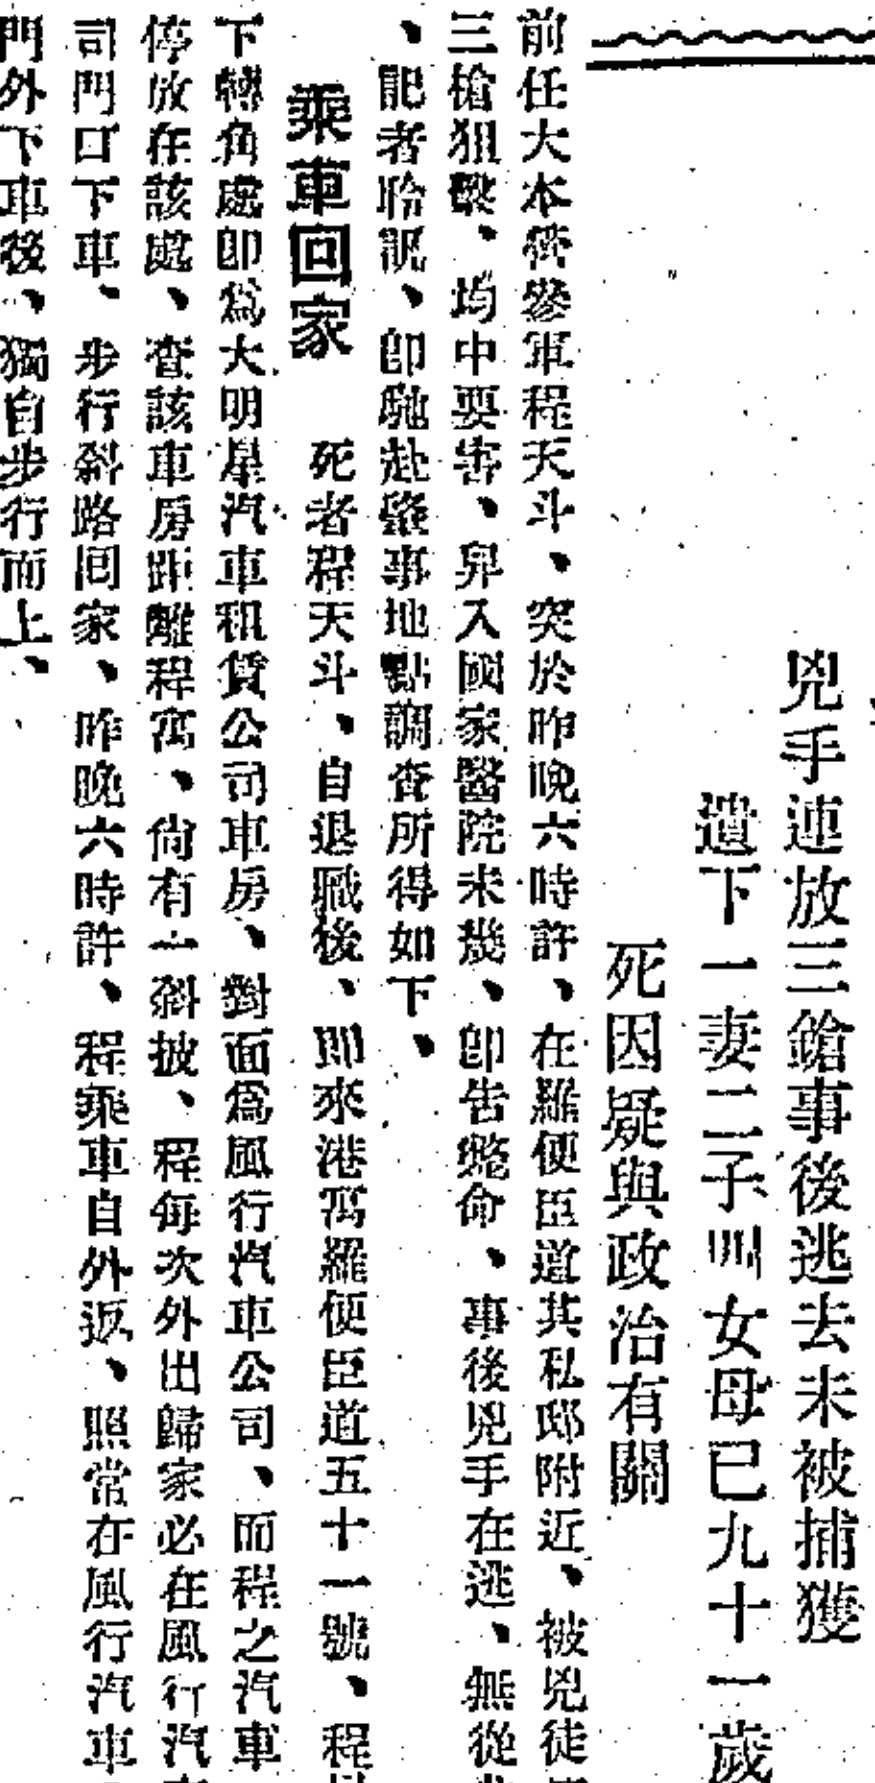 兇手連放三鎗事後逃去未被捕獲
遺下一妻二子四女母已九十一歲
死因疑與政治有關
前任大本營參軍程天斗、突於昨晚六時許、在羅便臣道其私邸附近、被兇徒
三槍狙擊、均中要害、舁入國家醫院未幾、卽告斃命、事後兇手在逃、無從
、記者聆訊、卽馳赴肇事地點調查所得如下、
乘車回家 死者程天斗、自退職後、卽來港寓羅便臣道五十一號、程
下轉角處卽爲大明星汽車租賃公司車房、對面爲風行汽車公司、而程之汽車
停放在該處、查該車房距離程寓、尙有一斜披、程每次外出歸家必在風行汽
司門口下車、步行斜路回家、昨晚六時許、程乘車自外返、照常在風行汽車
門外下車後、獨自步行而上、